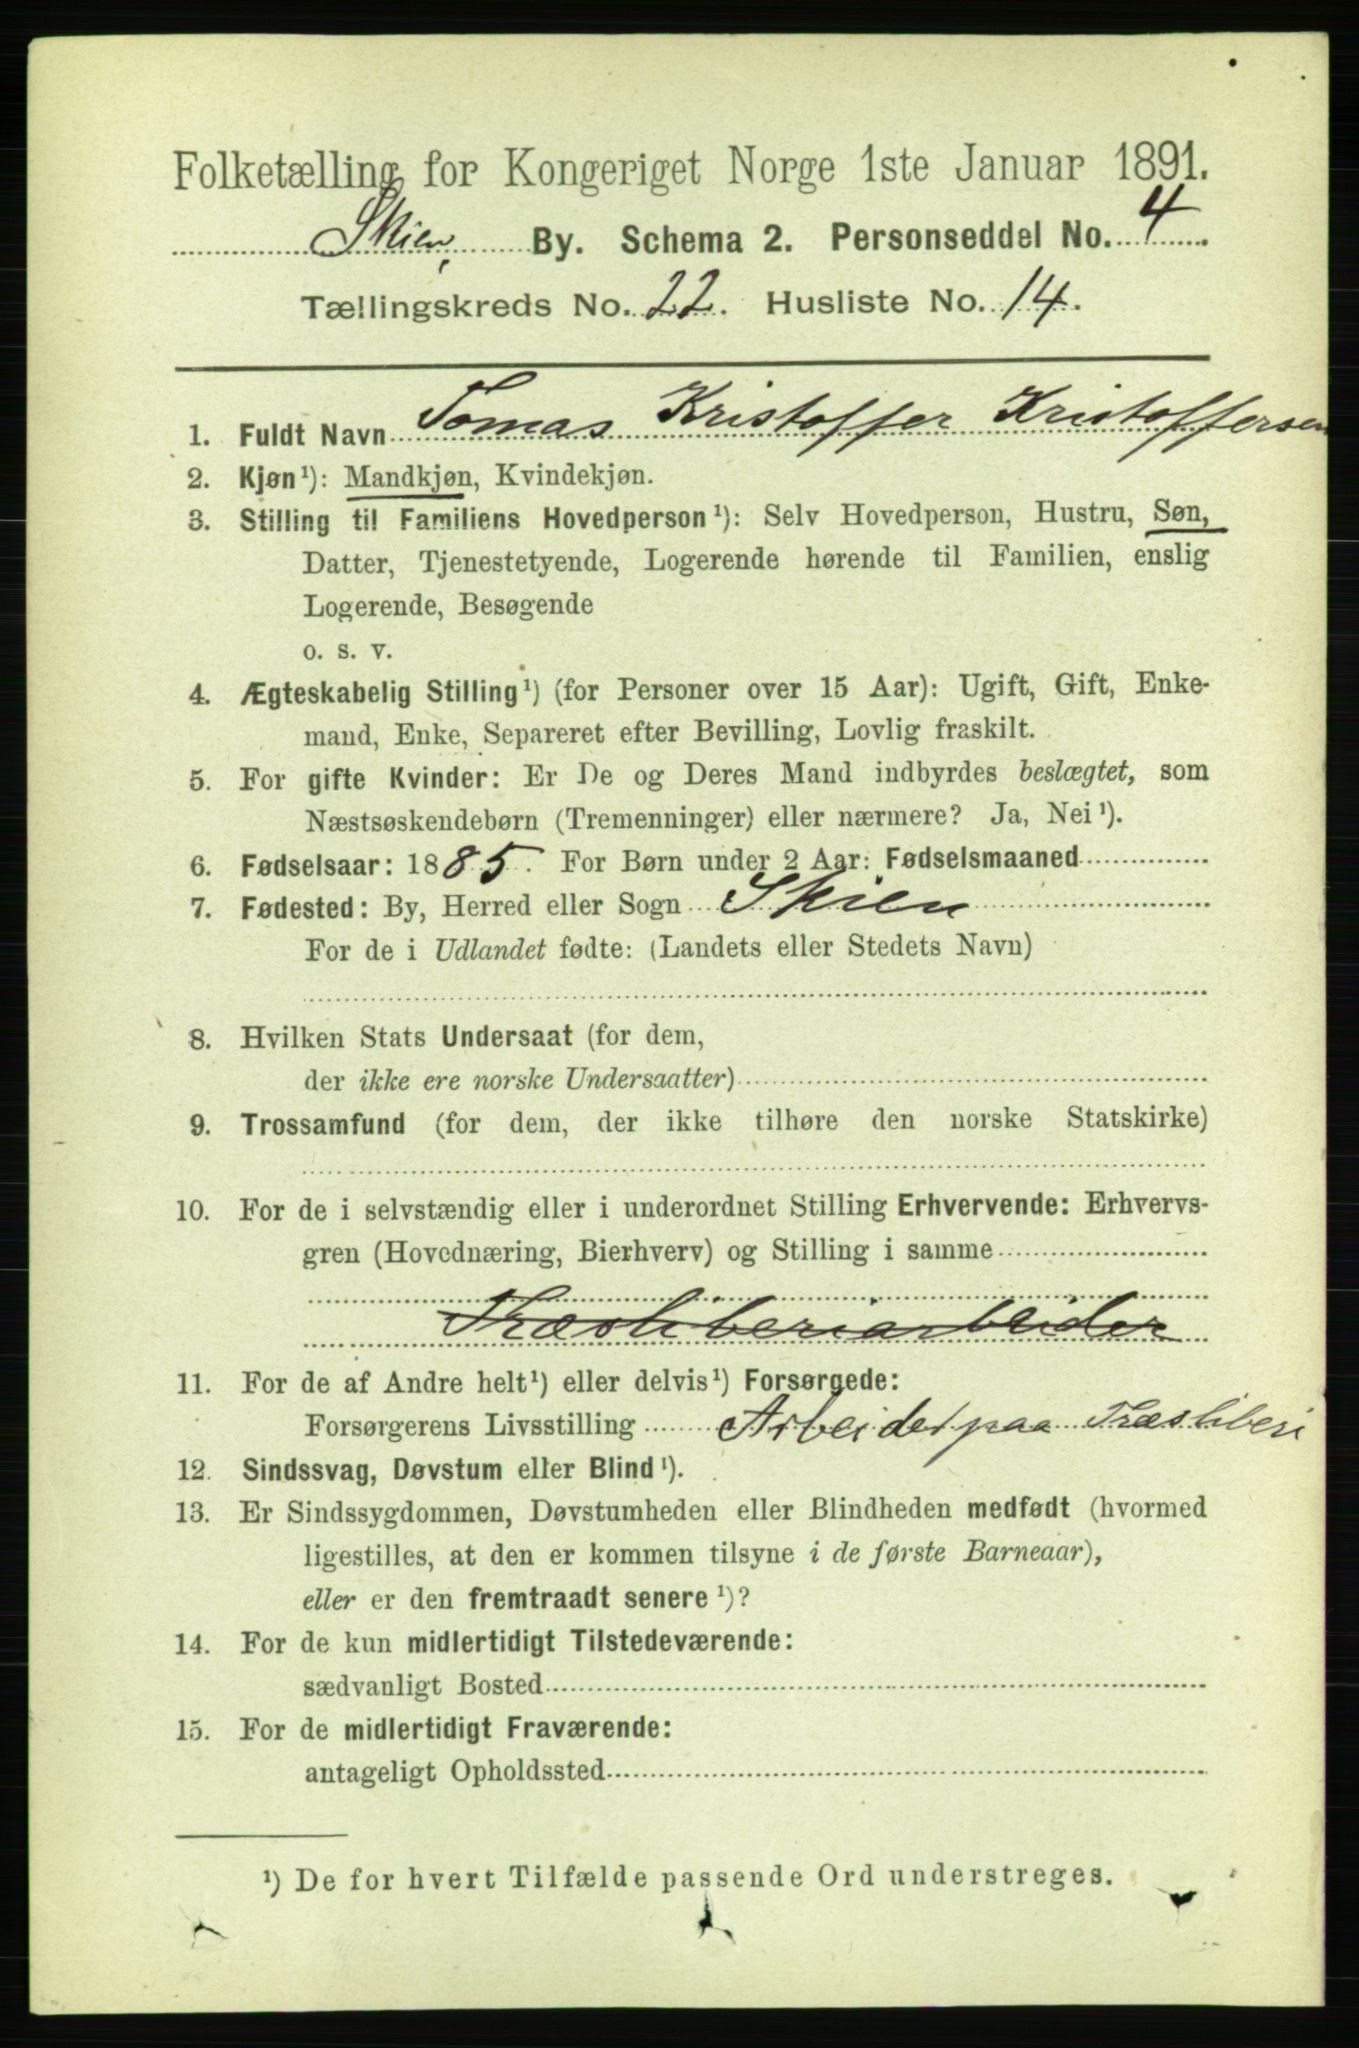 Folketælling for Kongeriget Norge 1ste Januar 1891.
Skien By. Schema 2. Personseddel No. 4
Tællingskreds No. 22. Husliste No. 14.
1. Fuldt Navn Tomas Kristoffer Kristoffersen
2. Kjøn¹): Mandkjøn, Kvindekjøn.
3. Stilling til Familiens Hovedperson¹): Selv Hovedperson, Hustru, Søn,
Datter, Tjenestetyende, Logerende hørende til Familien, enslig
Logerende, Besøgende
o. s. v.
4. Ægteskabelig Stilling¹) (for Personer over 15 Aar): Ugift, Gift, Enke-
mand, Enke, Separeret efter Bevilling, Lovlig fraskilt.
5. For gifte Kvinder: Er De og Deres Mand indbyrdes beslægtet, som
Næstsøskendebørn (Tremenninger) eller nærmere? Ja, Nei¹).
6. Fødselsaar: 1885. For Børn under 2 Aar: Fødselsmaaned
7. Fødested: By, Herred eller Sogn Skien
For de i Udlandet fødte: (Landets eller Stedets Navn)
8. Hvilken Stats Undersaat (for dem,
der ikke ere norske Undersaatter)
9. Trossamfund (for dem, der ikke tilhøre den norske Statskirke)
10. For de i selvstændig eller i underordnet Stilling Erhvervende: Erhvervs-
gren (Hovednæring, Bierhverv) og Stilling i samme
Træsliberiarbeider
11. For de af Andre helt¹) eller delvis¹) Forsørgede:
Forsørgerens Livsstilling Arbeider paa Træsliberi
12. Sindssvag, Døvstum eller Blind¹).
13. Er Sindssygdommen, Døvstumheden eller Blindheden medfødt (hvormed
ligestilles, at den er kommen tilsyne i de første Barneaar),
eller er den fremtraadt senere¹)?
14. For de kun midlertidigt Tilstedeværende:
sædvanligt Bosted
15. For de midlertidigt Fraværende:
antageligt Opholdssted
¹) De for hvert Tilfælde passende Ord understreges.